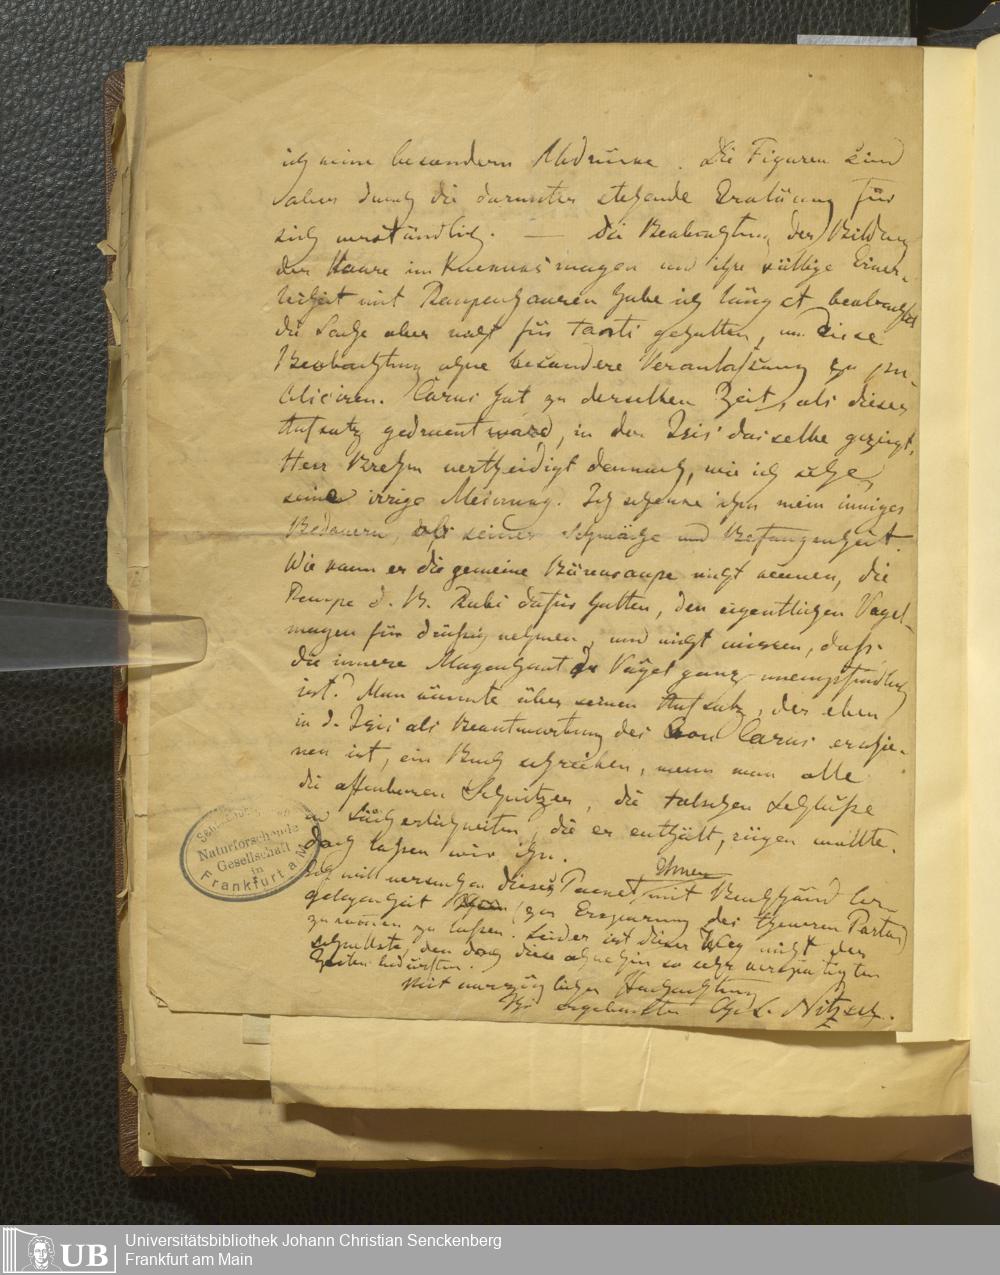 ich keine besondern Abdrücke. Die Figuren sind
aber durch die darunter stehende Erklärung für
sich verständlich. — Die Beobachtung der Bildung
der Haare im Kuckucksmagen und ihre völlige Einer-
leiheit mit Raupenhaaren habe ich längst beobachtet
die Sache aber nicht für tanti gehalten, um diese
Beobachtung ohne besondere Veranlaßung zu pu-
bliciren. Carus hat zu derselben Zeit, als dieser
Aufsatz gedruckt ward, in der Isis dasselbe gezeigt.
Herr Brehm vertheidigt dennoch, wie ich sehe,
seine irrige Meinung. Ich schenke ihm mein inniges
Bedauern, ob seiner Schwäche und Befangenheit.
Wie kann er die gemeine Bärenraupe nicht kennen, die
Raupe d. B. Rubi dafür halten, den eigentlichen Vogel-
magen für drüsig nehmen, und nicht wissen, daß
die innere Magenhaut der Vögel ganz unempfindlich
ist? Man könnte über seinen Aufsatz, der eben
in d. Isis als Beantwortung des von Carus erschie-
nen ist, ein Buch schreiben, wenn man alle
die offenbaren Schnitzer, die falschen Schlüße
u Lächerlichkeiten, die er enthält, rügen wollte.
Doch laßen wir ihn.
Ich will versuchen dieses Packet Ihnen mit Buchhändler-
gelegenheit (zur Ersparung des theuren Porto)
zukommen zu laßen. Leider ist dieser Weg nicht der
schnellste, den doch diese ohnehin so sehr verspätigten
Zeilen bedürften.
Mit vorzüglicher Hochachtung
Ihr ergebenster Chr. L. Nitzsch.
Senckenbergische
Naturforschende
Gesellschaft
in
Frankfurt a M
UB
Universitätsbibliothek Johann Christian Senckenberg
Frankfurt am Main